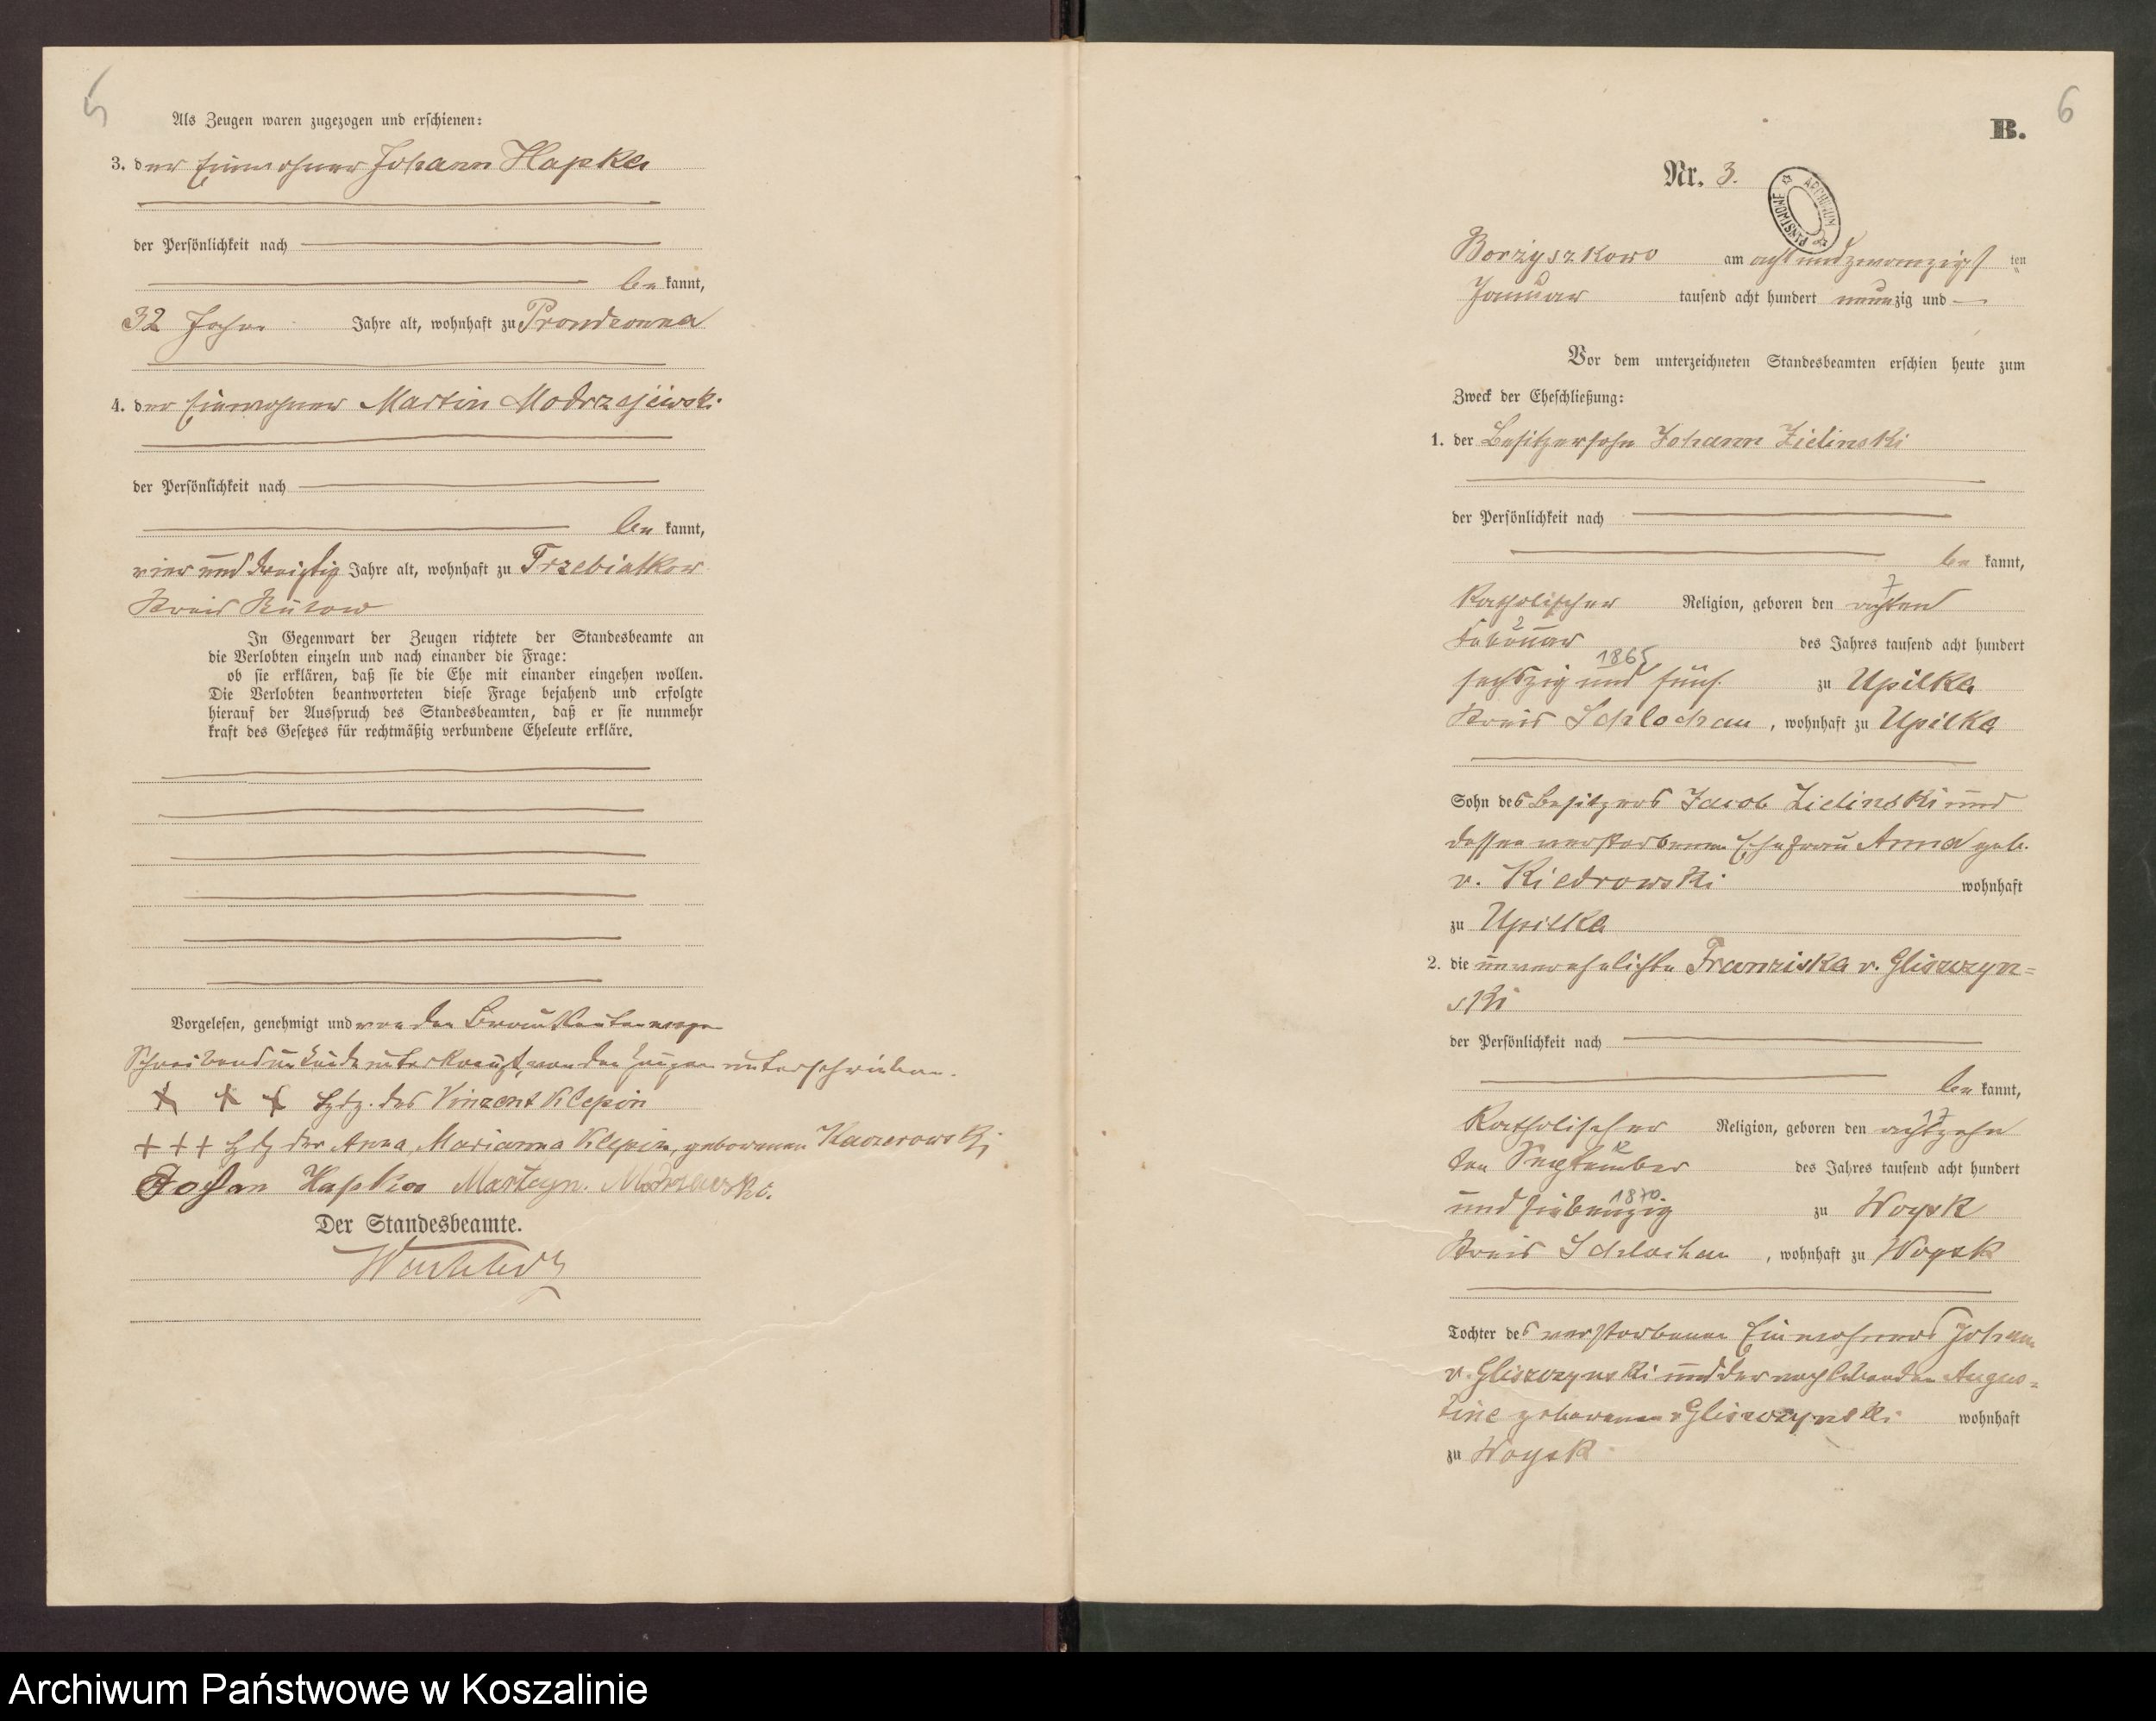 5
Als Zeugen waren zugezogen und erschienen:
3. der Einwohner Johann Hapka
der Persönlichkeit nach
be kannt,
32 Jahre Jahre alt, wohnhaft zu Prondzonna
4. der Einwohner Martin Modrzejewski
der Persönlichkeit nach
be kannt,
vier und dreißig Jahre alt, wohnhaft zu Trzebiatkow
Kreis Bütow
In Gegenwart der Zeugen richtete der Standesbeamte an
die Verlobten einzeln und nach einander die Frage:
ob sie erklären, daß sie die Ehe mit einander eingehen wollen.
Die Verlobten beantworteten diese Frage bejahend und erfolgte
hierauf der Ausspruch des Standesbeamten, daß er sie nunmehr
kraft des Gesetzes für rechtmäßig verbundene Eheleute erkläre.
Vorgelesen, genehmigt und von den Brautleuten wegen
Schreibensunkunde unterkreuzt, von den Zeugen unterschrieben.
+ + + Hdz. des Vinzent Klepin
+++ Hdz der Anna, Marianna Klepin, geborenen Kaczerowski
Johan Hapka Martcyn.
Der Standesbeamte.
6
B.
Nr. 3.
ARCHIWUM PAŃSTWOWE
Borzyszkowo am acht und zwanzigst ten
Januar tausend acht hundert neunzig und —
Vor dem unterzeichneten Standesbeamten erschien heute zum
Zweck der Eheschließung:
1. der Besitzersohn Johann Zielinski
der Persönlichkeit nach
be kannt,
7
katholischer Religion, geboren den achten
2
Februar des Jahres tausend acht hundert
1865
sechszig und fünf zu Upilka
Kreis Schlochau, wohnhaft zu Upilka
Sohn des Besitzers Jacob Zielinski und
dessen verstorbenen Ehefrau Anna geb.
v. Kiedrowski wohnhaft
zu Upilka
2. die unverehelichte Franziska v. Gliszczyn=
ski
der Persönlichkeit nach
be kannt,
17
katholischer Religion, geboren den achtzehn
ten September des Jahres tausend acht hundert
1870
und siebenzig zu Woysk
Kreis Schlochau, wohnhaft zu Woysk
Tochter des verstorbenen Einwohners Johann
v. Gliszczynski und der noch lebenden Augus=
tine geborenen v Gliszczynski wohnhaft
zu Woysk
Archiwum Państwowe w Koszalinie